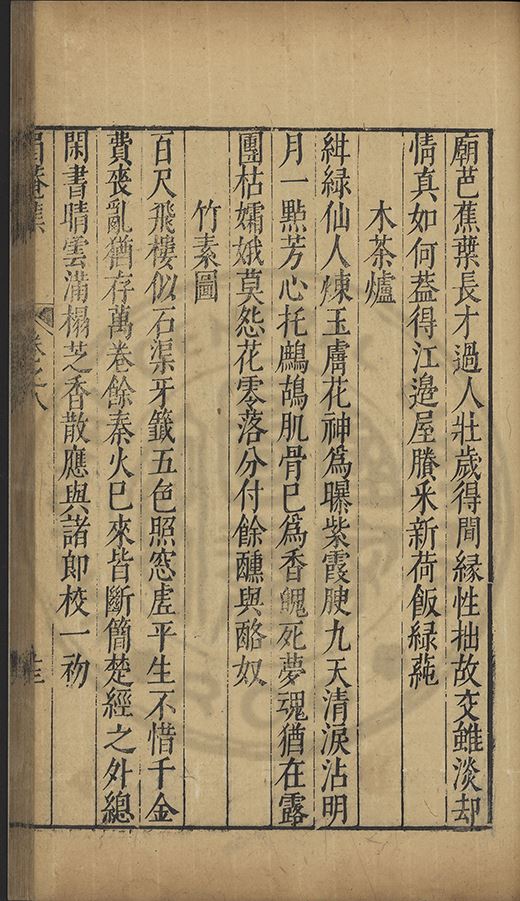 廟芭蕉葉長才過人壯歲得閒緣性拙故交雖淡却
情真如何蓋得江邊屋賸釆新荷飯綠蒓
木茶爐
紺綠仙人煉玉膚花神爲曝紫霞腴九天清淚沾明
月一㸃芳心托鷓鴣肌骨已爲香魄死夢魂猶在露
團枯孀娥莫怨花零落分付餘醺與酪奴
竹素圖
百尺飛樓似石渠牙籤五色照窓虚平生不惜千金
費喪亂猶存萬卷餘秦火已來皆斷簡楚經之外總
閑書晴雲滿榻芝香散應與諸郎校一初
眉菴集
卷之八
十三